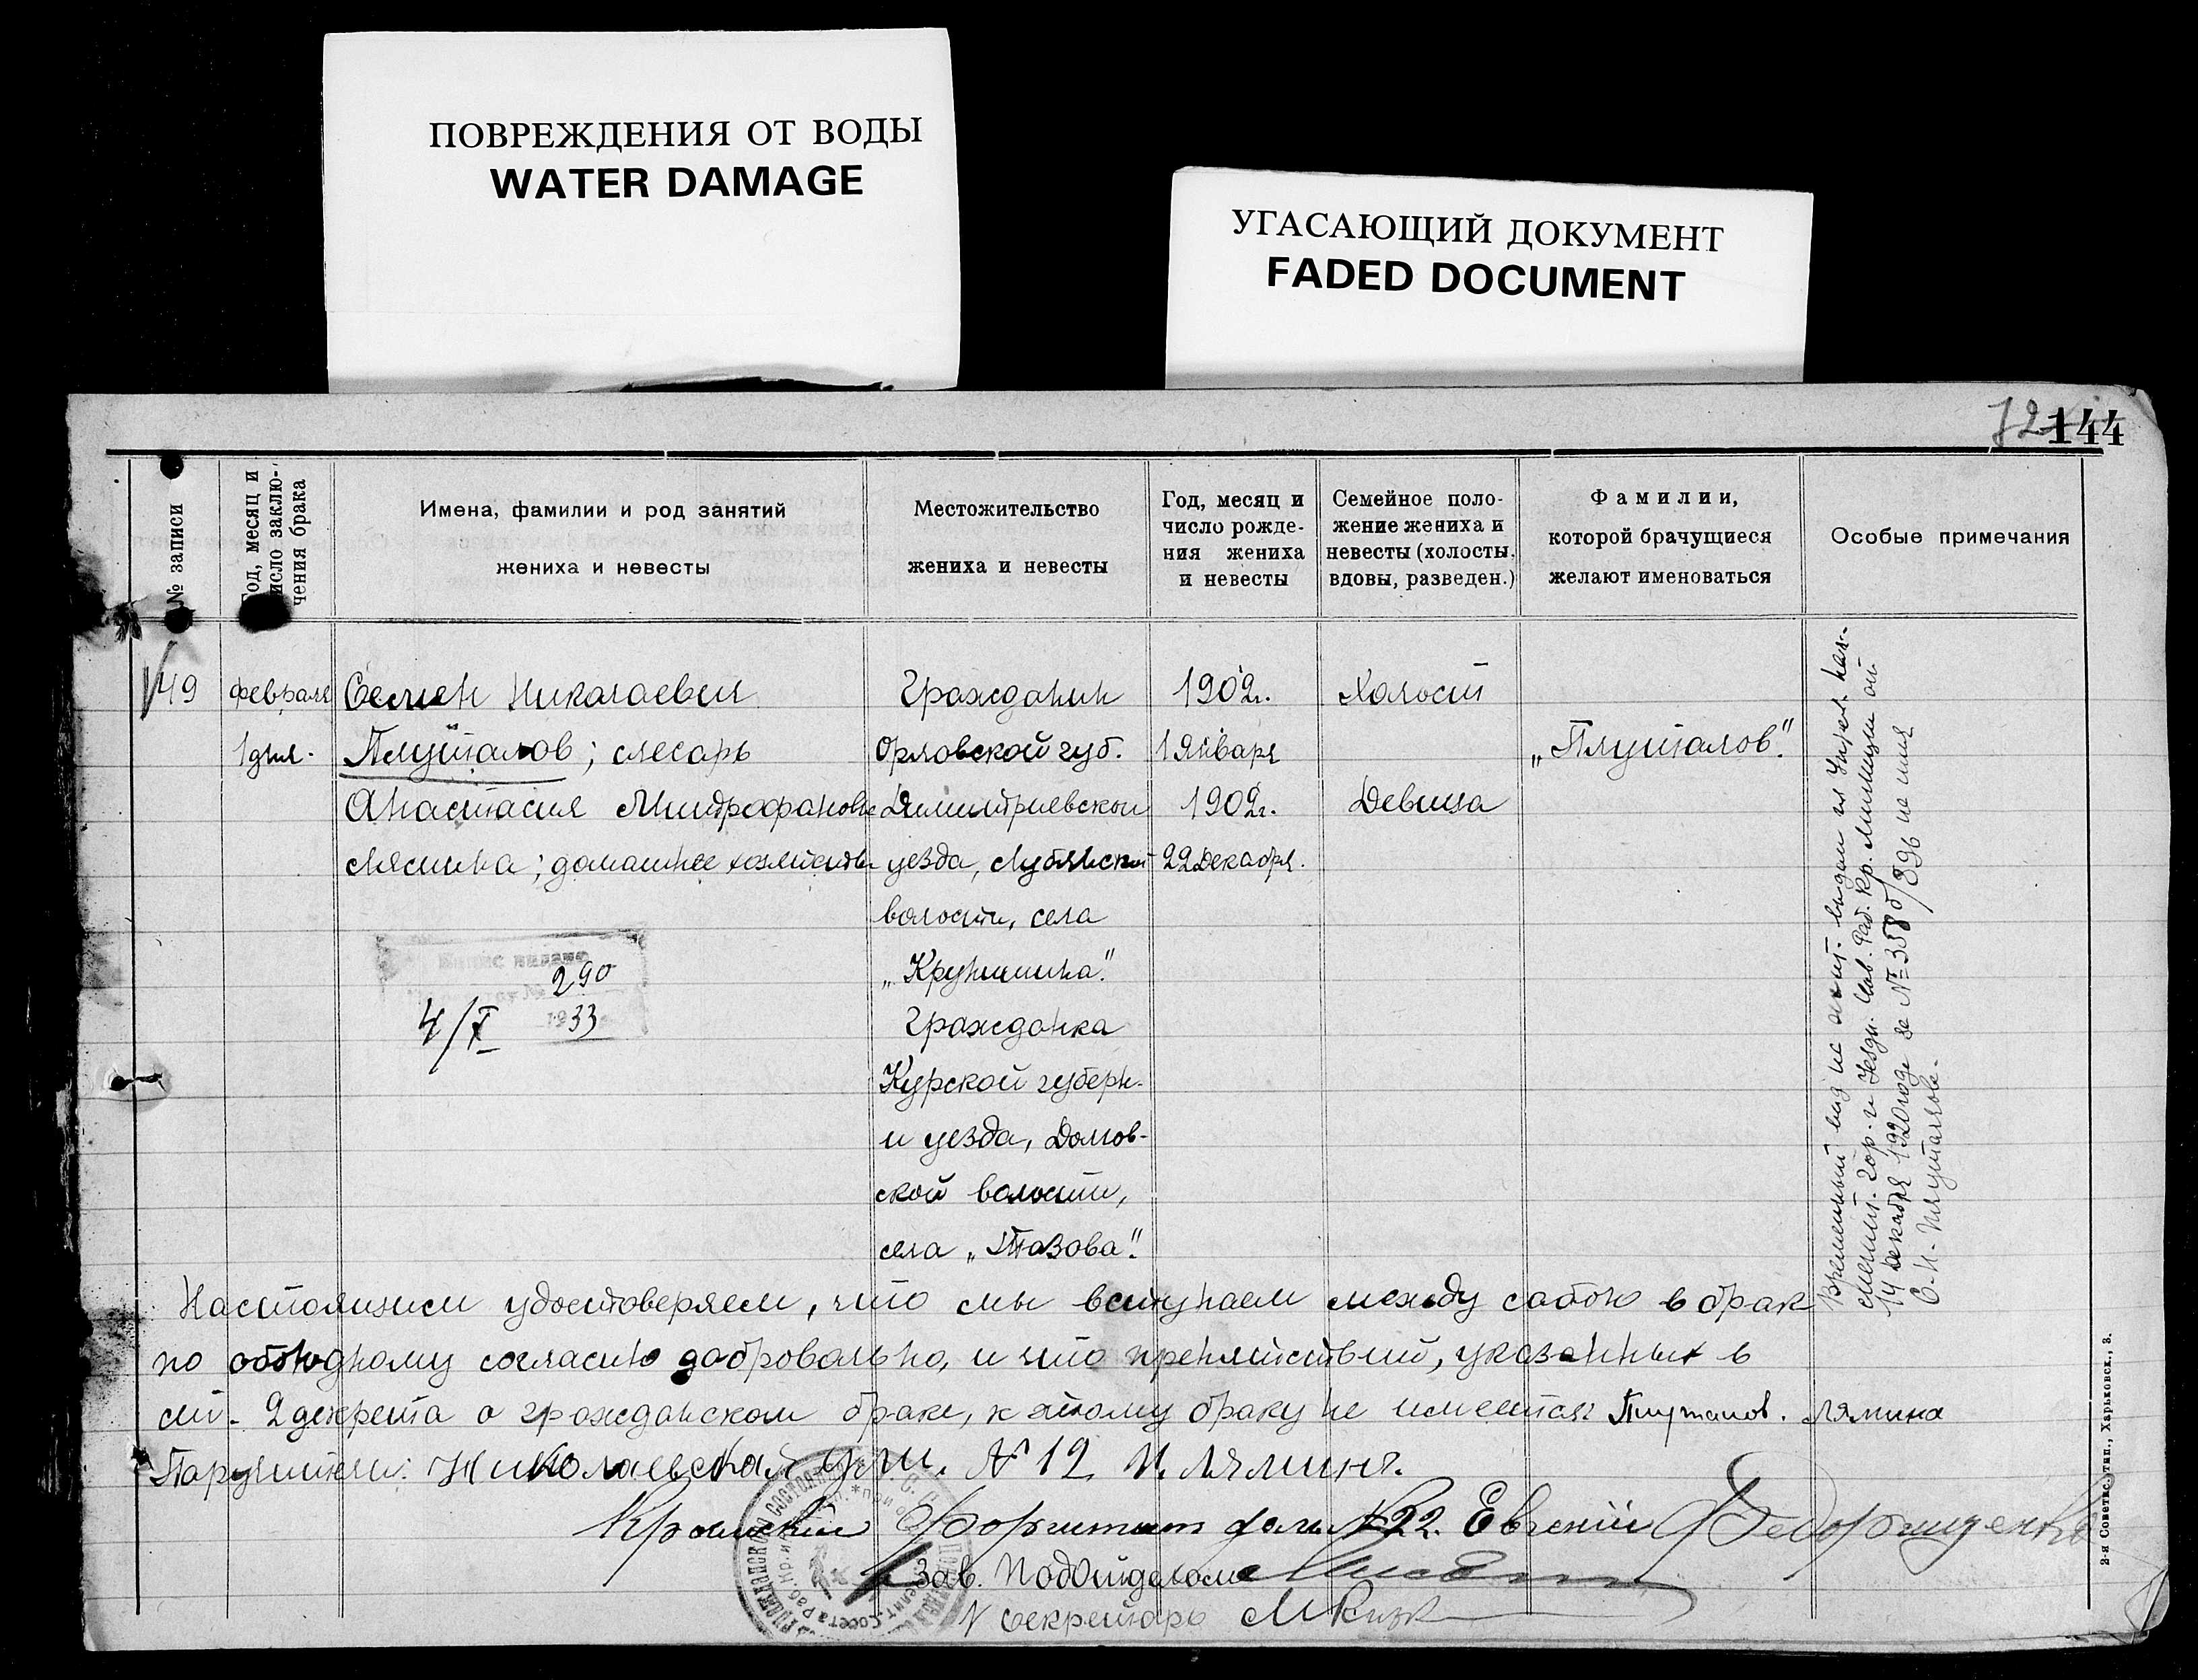 ПОВРЕЖДЕНИЯ ОТ ВОДЫ
WATER DAMAGE
УГАСАЮЩИЙ ДОКУМЕНТ
FADED DOCUMENT
72
144
№ записи
Год, месяц и
число заклю-
чения брака
Имена, фамилии и род занятий
жениха и невесты
Местожительство
жениха и невесты
Год, месяц и
число рожде-
ния жениха
и невесты
Семейное поло-
жение жениха и
невесты (холосты,
вдовы, разведен.)
Фамилии,
которой брачущиеся
желают именоваться
Особые примечания
49
февраля
1 дня.
Семен Николаевич
Плуталов; слесарь
Анастасия Митрофановна
Лямина; домашнее хозяйство
Гражданин
Орловской губ.
Димитриевской
уезда, Лубянской
волости, села
„Крупышина".
Гражданка
Курской губерн.
и уезда, Долгов-
ской волости,
села „Тазова".
1902г.
1 Января
1902г.
22 Декабря.
Холост
Девица
„Плуталов".
290
4/X 1933
Временный вид на жит. выдан из
14 декабря 1920 года за №
С. Н. Плуталова.
Настоящим удостоверяем, что мы вступаем между собою в брак
по обоюдному согласию добровольно, и что препятствий, указанных в
ст. 2 декрета о гражданском браке, к этому браку не имеется: Плуталов. Лямина
Поручители: Николаевская ул. № 12 И. Лямин.
22. Евгений
Зав. Подотделом
Секретарь
2-я Советск. тип., Харьковск., 3.